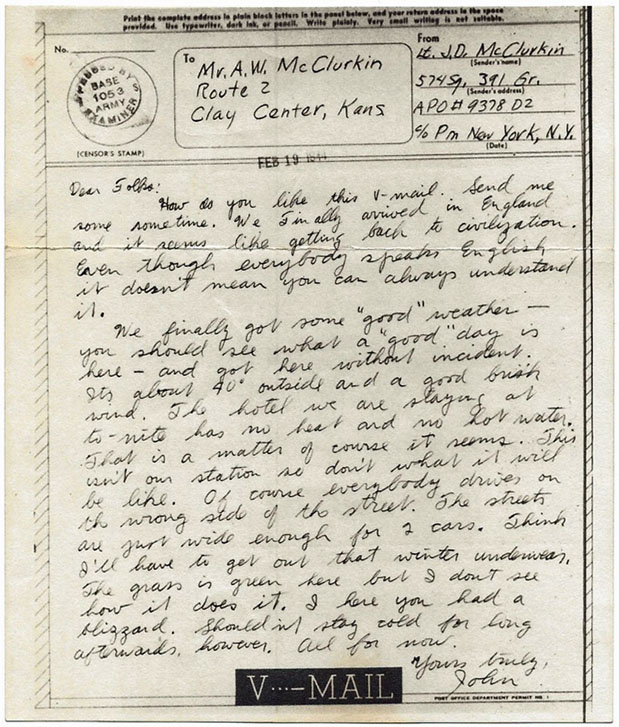 Print the complete address in plain block letters in the panel below, and your return address in the space
provided. Use typewriter, dark ink, or pencil. Write plainly. Very small writing is not suitable.
No.
PASSED BY
BASE
1053
ARMY
EXAMINER
(CENSOR'S STAMP)
To
Mr. A.W. McClurkin
Route 2
Clay Center, Kans
From
Lt. J.D. McClurkin
(Sender's name)
574 Sq. 391 Gr.
(Sender's address)
APO # 9378 D2
c/o Pm New York, N.Y.
(Date)
FEB 19 1944
Dear Folks:
How do you like this V-mail. Send me
some sometime. We Finally arrived in England
and it seems like getting back to civilization.
Even though everybody speaks English
it doesn't mean you can always understand
it.
We finally got some "good" weather –
you should see what a "good" day is
here – and got here without incident.
Its about 40° outside and a good brisk
wind. The hotel we are staying at
to-nite has no heat and no hot water.
That is a matter of course it seems. This
isn't our station so don't what it will
be like. Of course everybody drives on
the wrong side of the street. The streets
are just wide enough for 2 cars. Think
I'll have to get out that winter underwear.
The grass is green here but I don't see
how it does it. I here you had a
blizzard. Shouldn't stay cold for long
afterwards, however. All for now.
Yours truly,
John
V···—MAIL
POST OFFICE DEPARTMENT PERMIT NO. 1